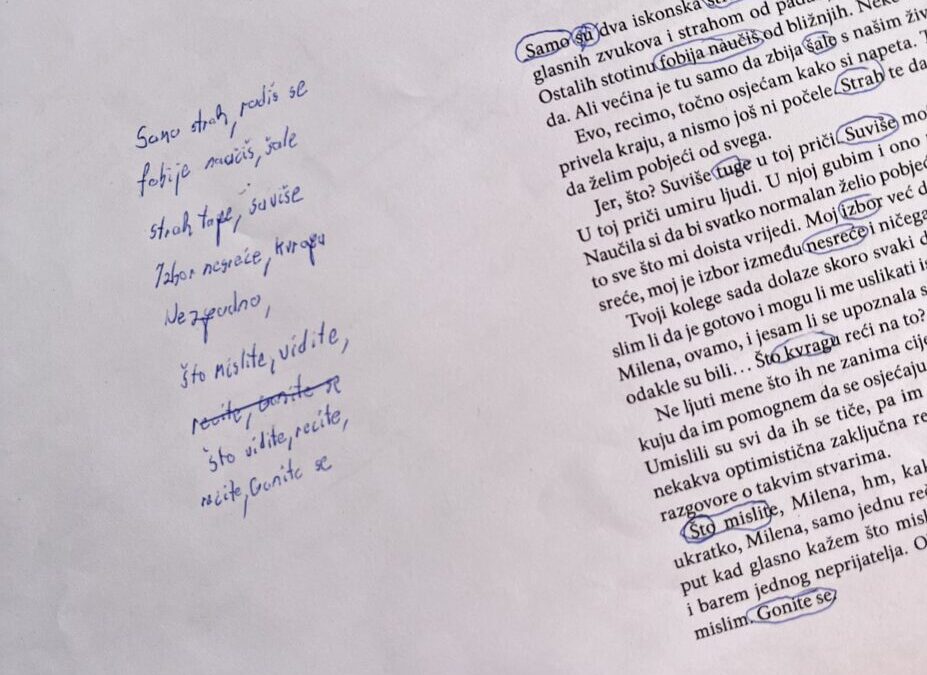 Samo strah, rodiš se
fobije naučiš, šale
strah tape, suviše
Izbor nesreće, kvragu
Nezgodno,
što mislite, vidite,
recite, Gonite se
što vidite, recite,
recite, Gonite se
Samo su dva iskonska
glasnih zvukova i strahom od
Ostalih stotinu fobija naučiš od bližnjih.
da. Ali većina je tu samo da zbija šale s našim
Evo, recimo, točno osjećam kako si napeta.
privela kraju, a nismo još ni počele. Strah te
da želim pobjeći od svega.
Jer, što? Suviše tuge u toj priči. Suviše
U toj priči umiru ljudi. U njoj gubim i ono
Naučila si da bi svatko normalan želio
to sve što mi doista vrijedi. Moj izbor već
sreće, moj je izbor između nesreće i ničega
Tvoji kolege sada dolaze skoro svaki
slim li da je gotovo i mogu li me uslikati
Milena, ovamo, i jesam li se upoznala s
odakle su bili… Što kvragu reći na to?
Ne ljuti mene što ih ne zanima
kuju da im pomognem da se osjećaju
Umislili su svi da ih se tiče, pa im
nekakva optimistična zaključna
razgovore o takvim stvarima.
Što mislite, Milena, hm,
ukratko, Milena, samo jednu
put kad glasno kažem što
i barem jednog neprijatelja.
mislim. Gonite se.